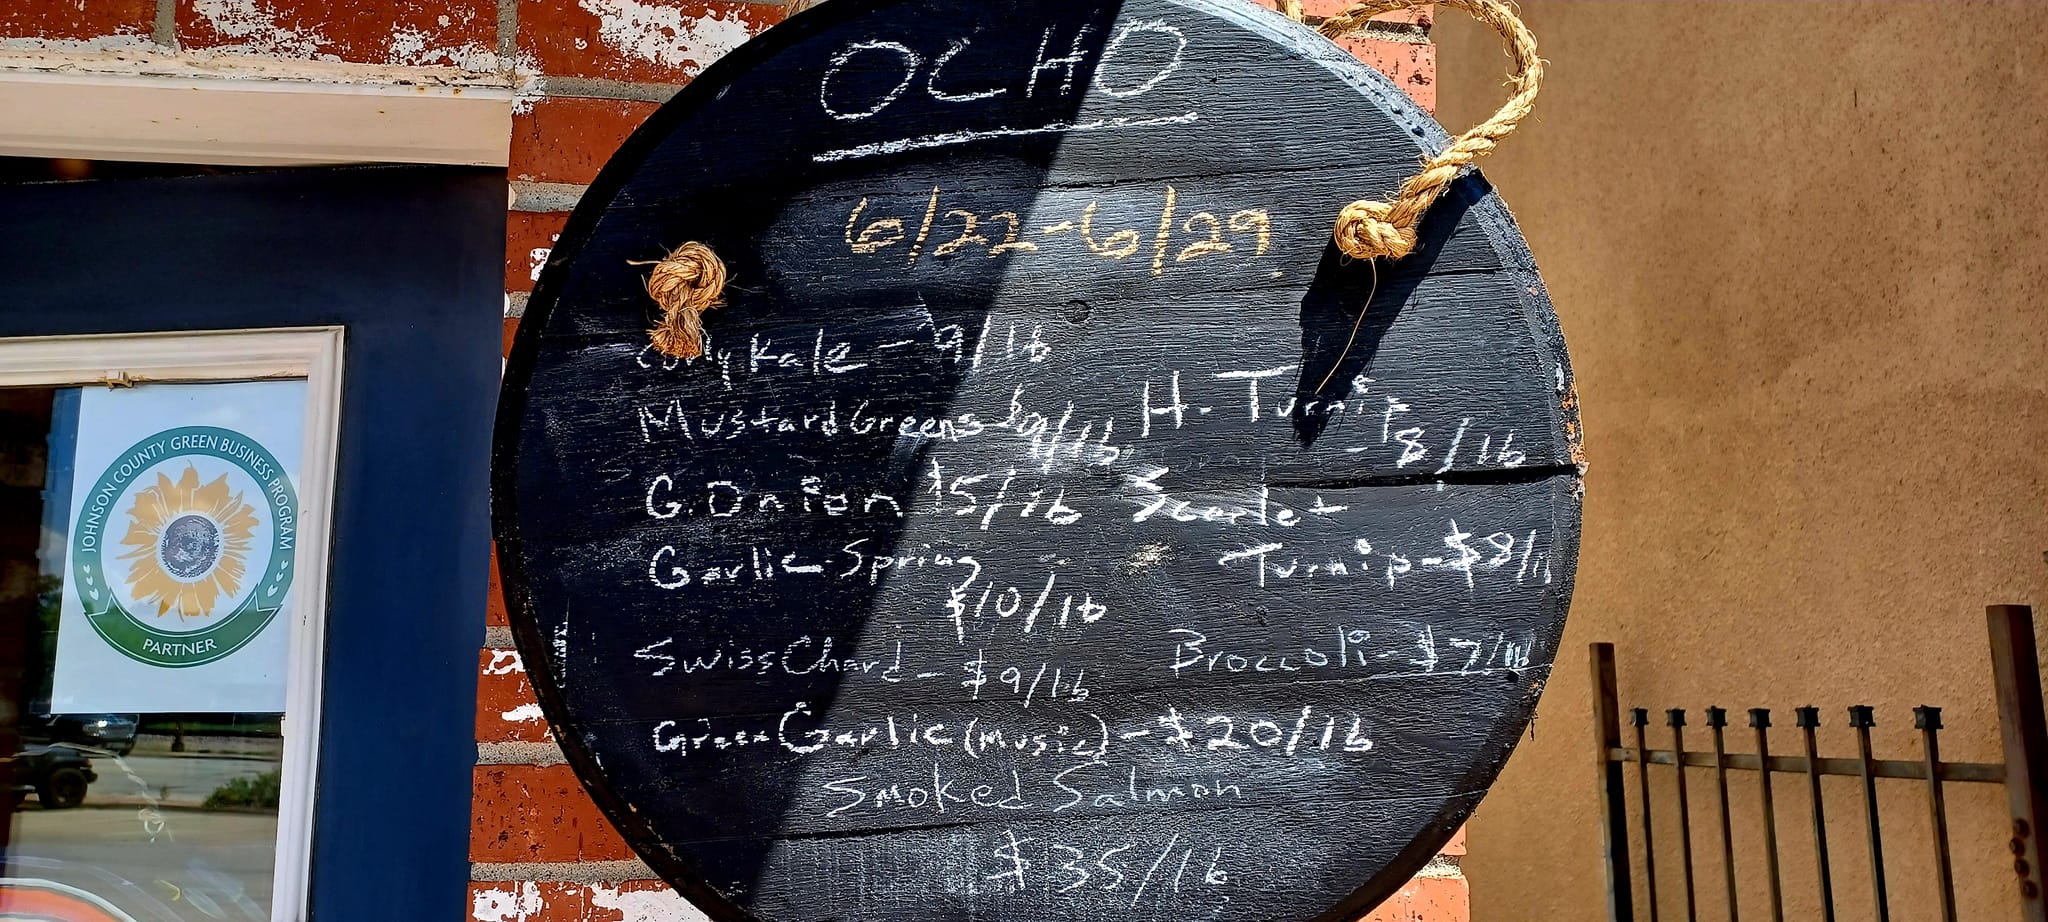 OCHO
6/22-6/29
Curly Kale - $9/lb
Mustard Greens $9/lb
G. Onion $5/lb
Garlic-Spring
$10/lb
Swiss Chard - $9/lb
H. Turnip
- $8/lb
Scarlet
Turnip - $8/lb
Broccoli - $7/lb
Green Garlic (Music) - $20/lb
Smoked Salmon
$35/lb
JOHNSON COUNTY GREEN BUSINESS PROGRAM
PARTNER